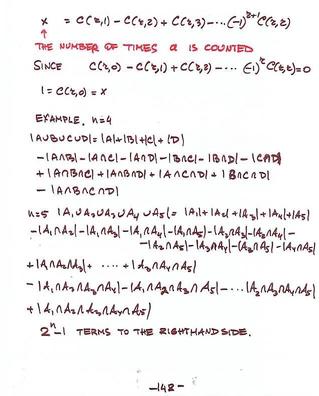 x = C(r,1) - C(r,2) + C(r,3) - ... (-1)^{r+1} C(r,r)
↑
THE NUMBER OF TIMES a IS COUNTED
SINCE C(r,0) - C(r,1) + C(r,2) - ... (-1)^r C(r,r) = 0
1 = C(r,0) = x
EXAMPLE. n=4
|A∪B∪C∪D| = |A|+|B|+|C|+|D|
-|A∩B|-|A∩C|-|A∩D|-|B∩C|-|B∩D|-|C∩D|
+|A∩B∩C|+|A∩B∩D|+|A∩C∩D|+|B∩C∩D|
-|A∩B∩C∩D|
n=5 |A₁∪A₂∪A₃∪A₄∪A₅| = |A₁|+|A₂|+|A₃|+|A₄|+|A₅|
-|A₁∩A₂|-|A₁∩A₃|-|A₁∩A₄|-|A₁∩A₅|-|A₂∩A₃|-|A₂∩A₄|-
-|A₂∩A₅|-|A₃∩A₄|-|A₃∩A₅|-|A₄∩A₅|
+|A₁∩A₂∩A₃|+ .... +|A₃∩A₄∩A₅|
-|A₁∩A₂∩A₃∩A₄|-|A₁∩A₂∩A₃∩A₅|-...|A₂∩A₃∩A₄∩A₅|
+|A₁∩A₂∩A₃∩A₄∩A₅|
2ⁿ-1 TERMS TO THE RIGHTHANDSIDE.
-148-